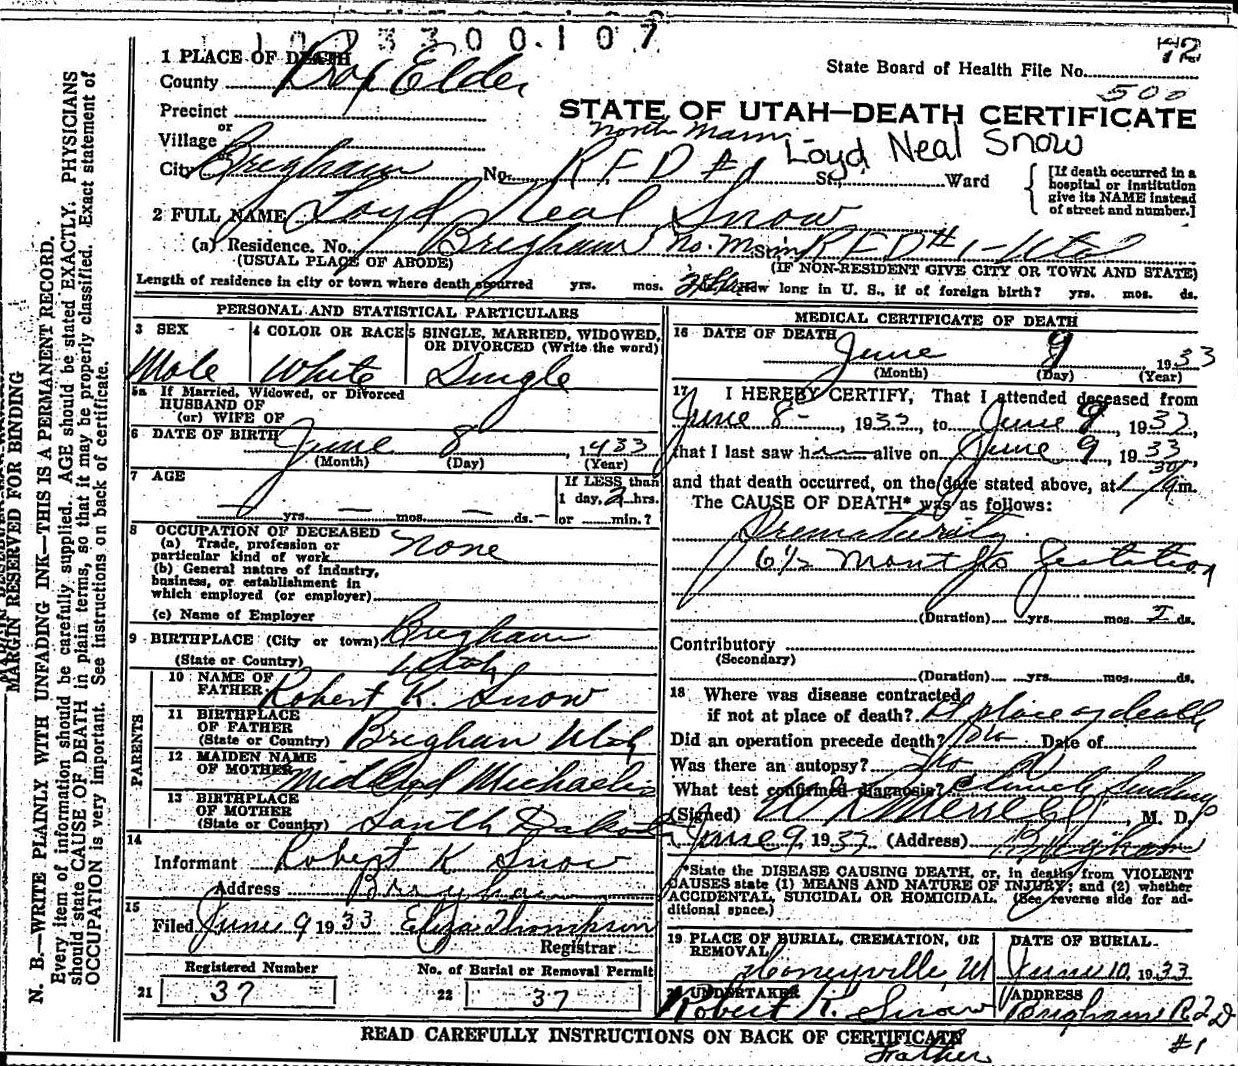 1033300.107
1 PLACE OF DEATH
County Box Elder
State Board of Health File No. 42
500
Precinct
STATE OF UTAH—DEATH CERTIFICATE
or
Village
North Main
Loyd Neal Snow
City Brigham No. R F D #1 St., Ward
[If death occurred in a
hospital or institution
give its NAME instead
of street and number.]
2 FULL NAME Loyd Neal Snow
(a) Residence. No. Brigham No. M St. R F D #1 - Utah
(USUAL PLACE OF ABODE) (IF NON-RESIDENT GIVE CITY OR TOWN AND STATE)
Length of residence in city or town where death occurred yrs. mos. How long in U. S., if of foreign birth? yrs. mos. ds.
PERSONAL AND STATISTICAL PARTICULARS
3 SEX 4 COLOR OR RACE 5 SINGLE, MARRIED, WIDOWED,
OR DIVORCED (Write the word)
Male White Single
5a If Married, Widowed, or Divorced
HUSBAND OF
(or) WIFE OF
6 DATE OF BIRTH June 8, 1933
(Month) (Day) (Year)
7 AGE If LESS than
1 day, 2 hrs.
— yrs. — mos. — ds. — or min.?
8 OCCUPATION OF DECEASED
(a) Trade, profession or
particular kind of work None
(b) General nature of industry,
business, or establishment in
which employed (or employer)
(c) Name of Employer
9 BIRTHPLACE (City or town) Brigham
(State or Country) Utah
PARENTS
10 NAME OF
FATHER Robert K. Snow
11 BIRTHPLACE
OF FATHER
(State or Country) Brigham Utah
12 MAIDEN NAME
OF MOTHER Michaelis
13 BIRTHPLACE
OF MOTHER
(State or Country) South Dakota
14
Informant Robert K Snow
Address Brigham
15
Filed June 9 1933 Eliza Thompson
Registrar
Registered Number No. of Burial or Removal Permit
21 37 22 37
MEDICAL CERTIFICATE OF DEATH
16 DATE OF DEATH
June 9 1933
(Month) (Day) (Year)
17 I HEREBY CERTIFY, That I attended deceased from
June 8 -, 1933, to June 9, 1933,
that I last saw him alive on June 9, 1933,
and that death occurred, on the date stated above, at 1 30 a m.
The CAUSE OF DEATH* was as follows:
Prematurity
6 1/2 Months Gestation
(Duration) yrs. mos. ds.
Contributory
(Secondary)
(Duration) yrs. mos. ds.
18 Where was disease contracted
if not at place of death? At place of death
Did an operation precede death? No Date of
Was there an autopsy? No
What test confirmed diagnosis? Clinical findings
(Signed) W R Merrell, M. D.
June 9 1933 (Address) Brigham
*State the DISEASE CAUSING DEATH, or, in deaths from VIOLENT
CAUSES state (1) MEANS AND NATURE OF INJURY; and (2) whether
ACCIDENTAL, SUICIDAL OR HOMICIDAL. (See reverse side for ad-
ditional space.)
19 PLACE OF BURIAL, CREMATION, OR
REMOVAL
Honeyville, Ut
DATE OF BURIAL
June 10, 1933
UNDERTAKER
Robert K. Snow
ADDRESS
Brigham R F D
#1
READ CAREFULLY INSTRUCTIONS ON BACK OF CERTIFICATE
Father
MARGIN RESERVED FOR BINDING
N. B.—WRITE PLAINLY WITH UNFADING INK—THIS IS A PERMANENT RECORD.
Every item of information should be carefully supplied. AGE should be stated EXACTLY. PHYSICIANS
should state CAUSE OF DEATH in plain terms, so that it may be properly classified. Exact statement of
OCCUPATION is very important. See instructions on back of certificate.